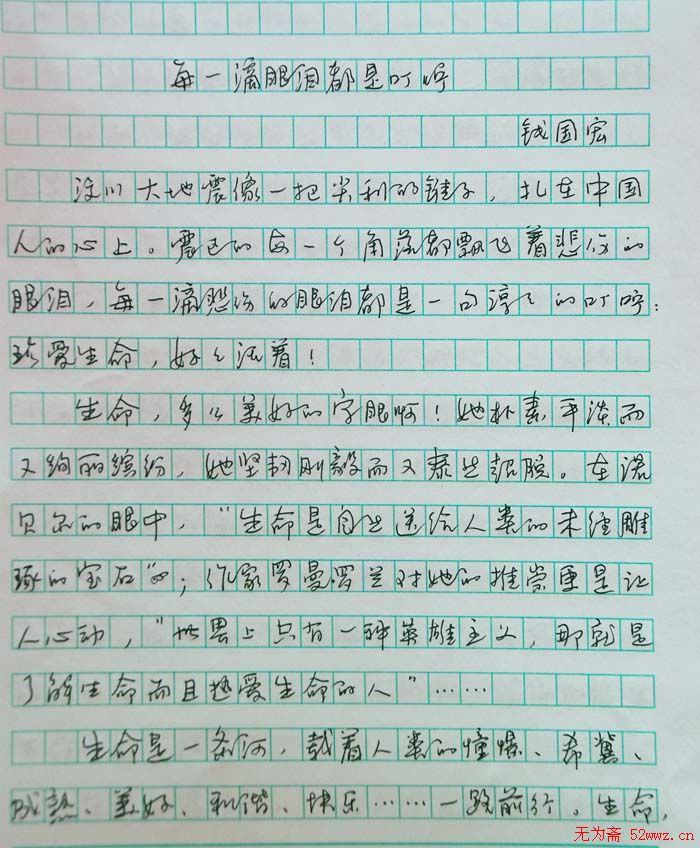 每一滴眼泪都是叮咛
钱国宏
汶川大地震像一把尖利的锥子，扎在中国
人的心上。震区的每一个角落都飘飞着悲伤的
眼泪，每一滴悲伤的眼泪都是一句谆谆的叮咛：
珍爱生命，好好活着！
生命，多么美好的字眼啊！她朴素平淡而
又绚丽缤纷，她坚韧刚毅而又泰然超脱。在诺
贝尔的眼中，“生命是自然送给人类的未经雕
琢的宝石”；作家罗曼罗兰对她的推崇更是让
人心动，“世界上只有一种英雄主义，那就是
了解生命而且热爱生命的人”……
生命是一条河，载着人类的憧憬、希冀、
成熟、美好、和谐、快乐……一路前行。生命，
无为斋 52wwz.cn